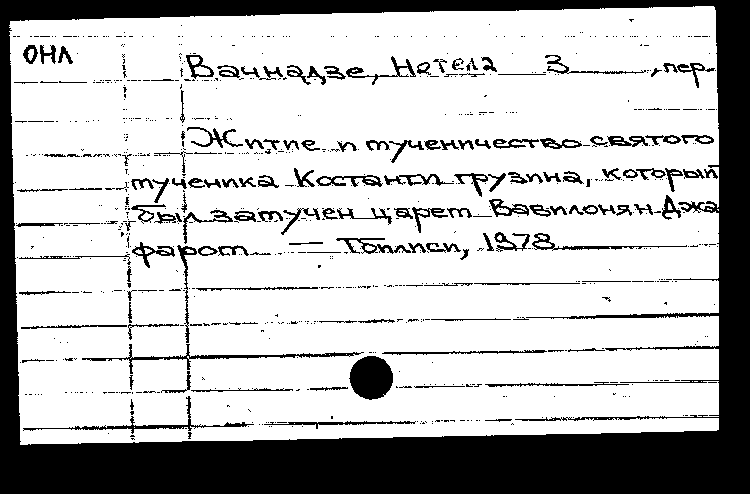 ОНЛ
Вачнадзе, Нателa З , пер.
Житие и мученичество святого
мученика Костанти грузина, который
был замучен царем Вавилонян Джа
фаром — Тбилиси, 1978